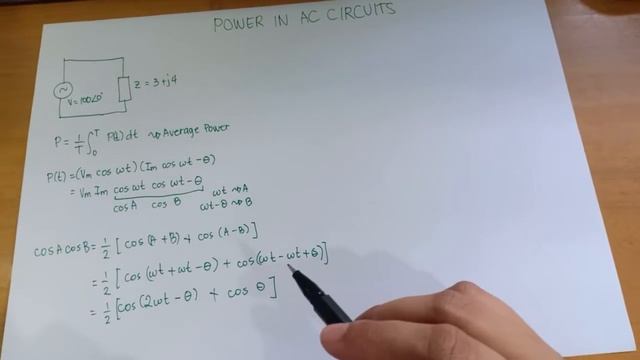 POWER IN AC CIRCUITS
Z = 3+j4
V = 100∠0°
P = 1/T ∫₀ᵀ P(t) dt ~> Average Power
P(t) = (Vm cos wt)(Im cos wt - θ)
= Vm Im cos wt cos wt - θ
cos A cos B
wt ~> A
wt - θ ~> B
cos A cos B = 1/2 [cos (A + B) + cos (A - B)]
= 1/2 [cos (wt + wt - θ) + cos (wt - wt + θ)]
= 1/2 [cos (2wt - θ) + cos θ]